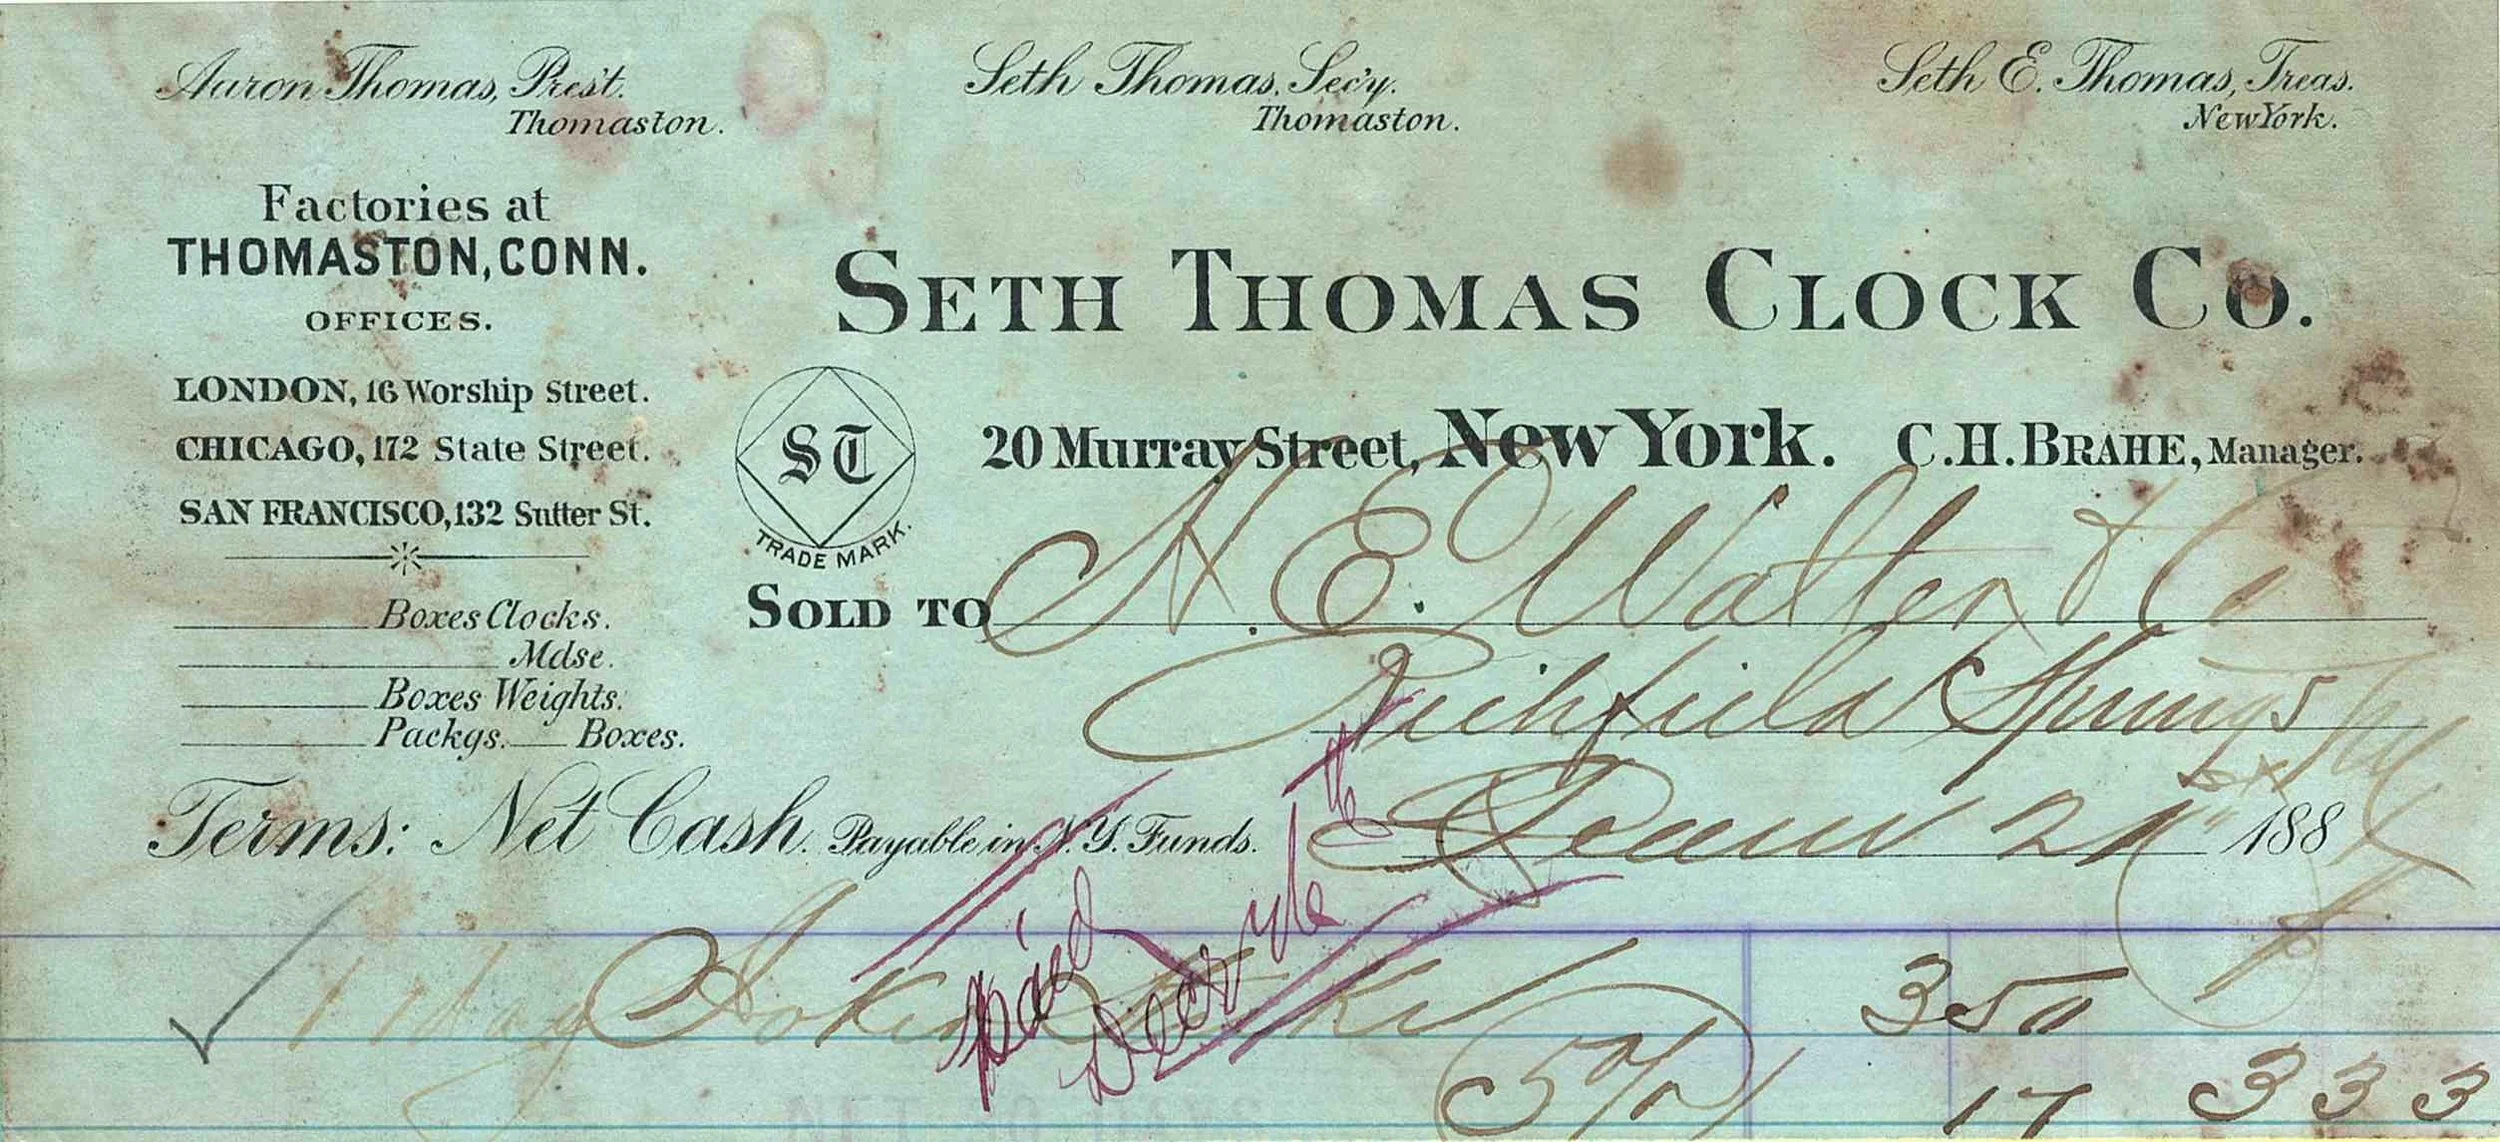 Aaron Thomas, Pres't.
Thomaston.
Seth Thomas, Sec'y.
Thomaston.
Seth E. Thomas, Treas.
New York.
Factories at
THOMASTON, CONN.
OFFICES.
LONDON, 16 Worship Street.
CHICAGO, 172 State Street.
SAN FRANCISCO, 132 Sutter St.
SETH THOMAS CLOCK CO.
ST
TRADE MARK.
20 Murray Street, New York. C. H. BRAHE, Manager.
SOLD TO H. E. Walter & Co
Richfield Springs
Boxes Clocks.
Mdse.
Boxes Weights.
Packgs. Boxes.
Terms: Net Cash. Payable in N. Y. Funds.
21 188
paid
1 1 day Strike 350
5% 17 333